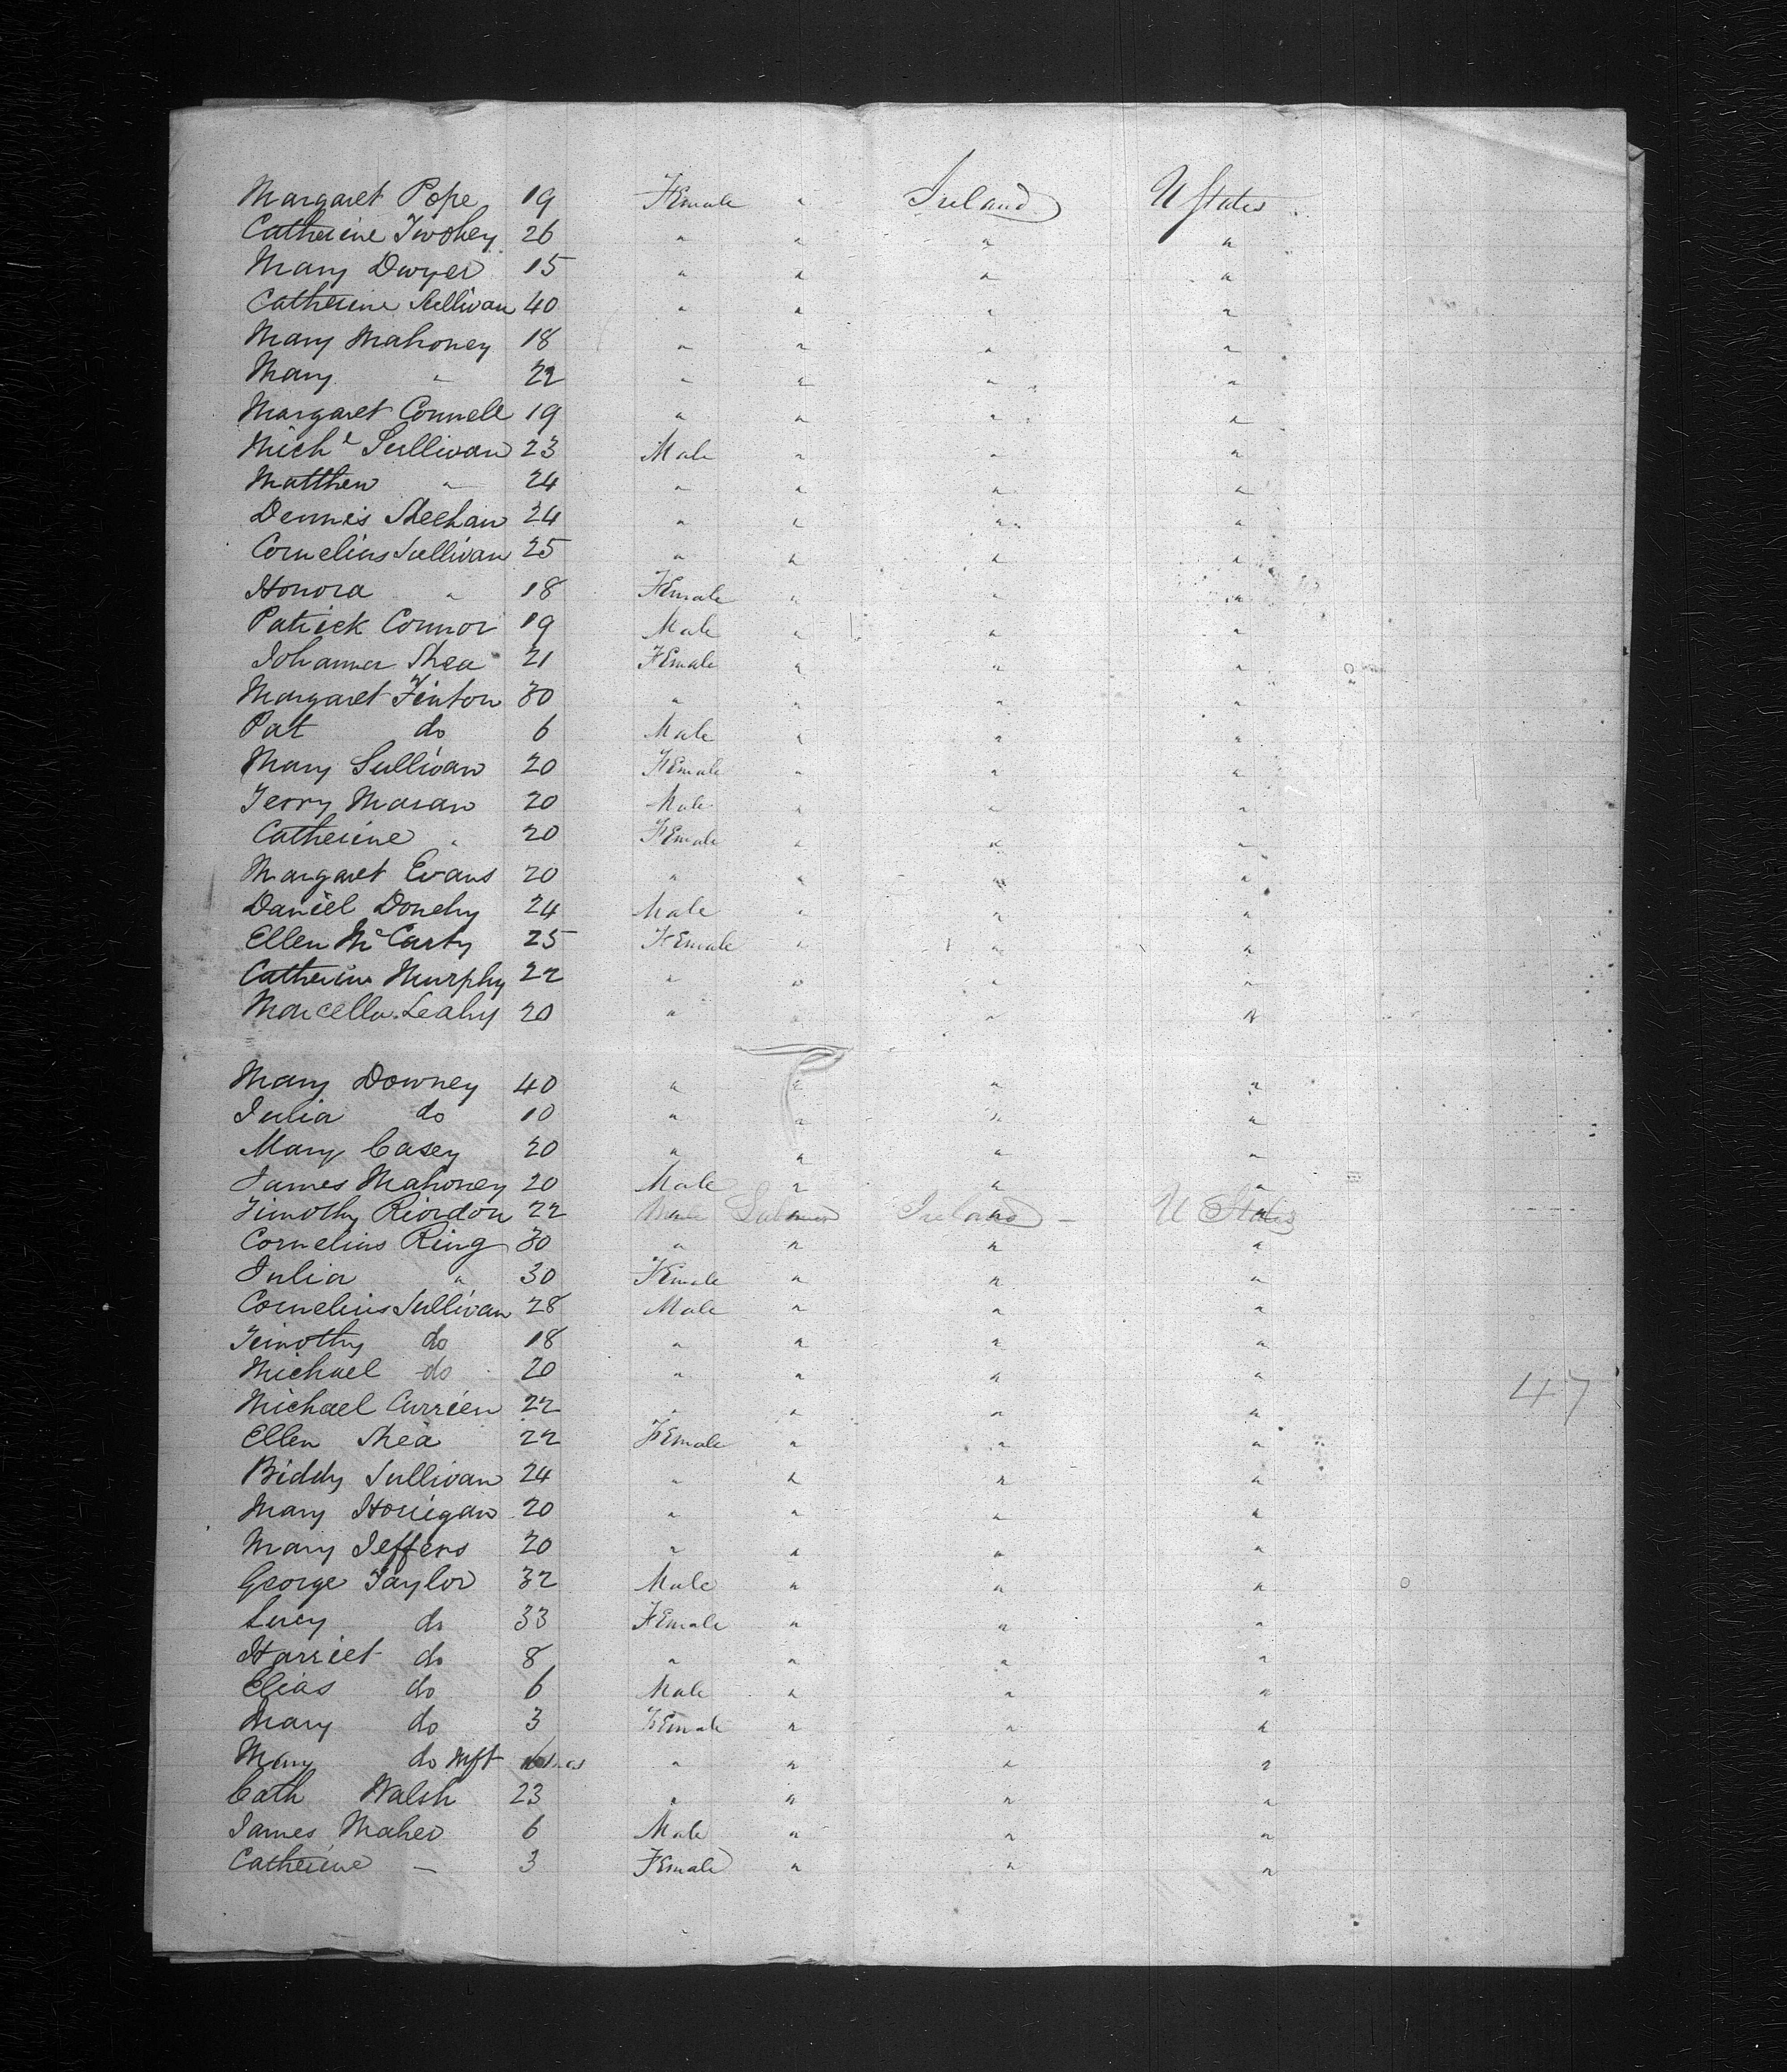 Margaret Pope 19 Female " Ireland U States
Catherine Twohey 26 " " " "
Mary Dwyer 15 " " " "
Catherine Sullivan 40 " " " "
Mary Mahoney 18 " " " "
Mary " 22 " " " "
Margaret Connell 19 " " " "
Michl Sullivan 23 Male " " "
Matthew " 24 " " " "
Dennis Sheehan 24 " " " "
Cornelius Sullivan 25 " " " "
Honora " 18 Female " " "
Patrick Connor 19 Male " " "
Johanna Shea 21 Female " " "
Margaret Finton 30 " " " "
Pat do 6 Male " " "
Mary Sullivan 20 Female " " "
Jerry Maran 20 Male " " "
Catherine " 20 Female " " "
Margaret Evans 20 " " " "
Daniel Donehy 24 Male " " "
Ellen McCarty 25 Female " " "
Catherine Murphy 22 " " " "
Marcella Leahy 20 " " " "
Mary Downey 40 " " " "
Julia do 10 " " " "
Mary Casey 20 " " " "
James Mahoney 20 Male " " "
Timothy Riordon 22 Male Laborer Ireland U States
Cornelius Ring 30 " " " "
Julia " 30 Female " " "
Cornelius Sullivan 28 Male " " "
Timothy do 18 " " " "
Michael do 20 " " " "
47
Michael Currien 22 " " " "
Ellen Shea 22 Female " " "
Biddy Sullivan 24 " " " "
Mary Horrigan 20 " " " "
Mary Jeffers 20 " " " "
George Taylor 32 Male " " "
Lucy do 33 Female " " "
Harriet do 8 " " " "
Elias do 6 Male " " "
Mary do 3 Female " " "
Mary do Inft " " " "
Cath Walsh 23 " " " "
James Maher 6 Male " " "
Catherine — 3 Female " " "